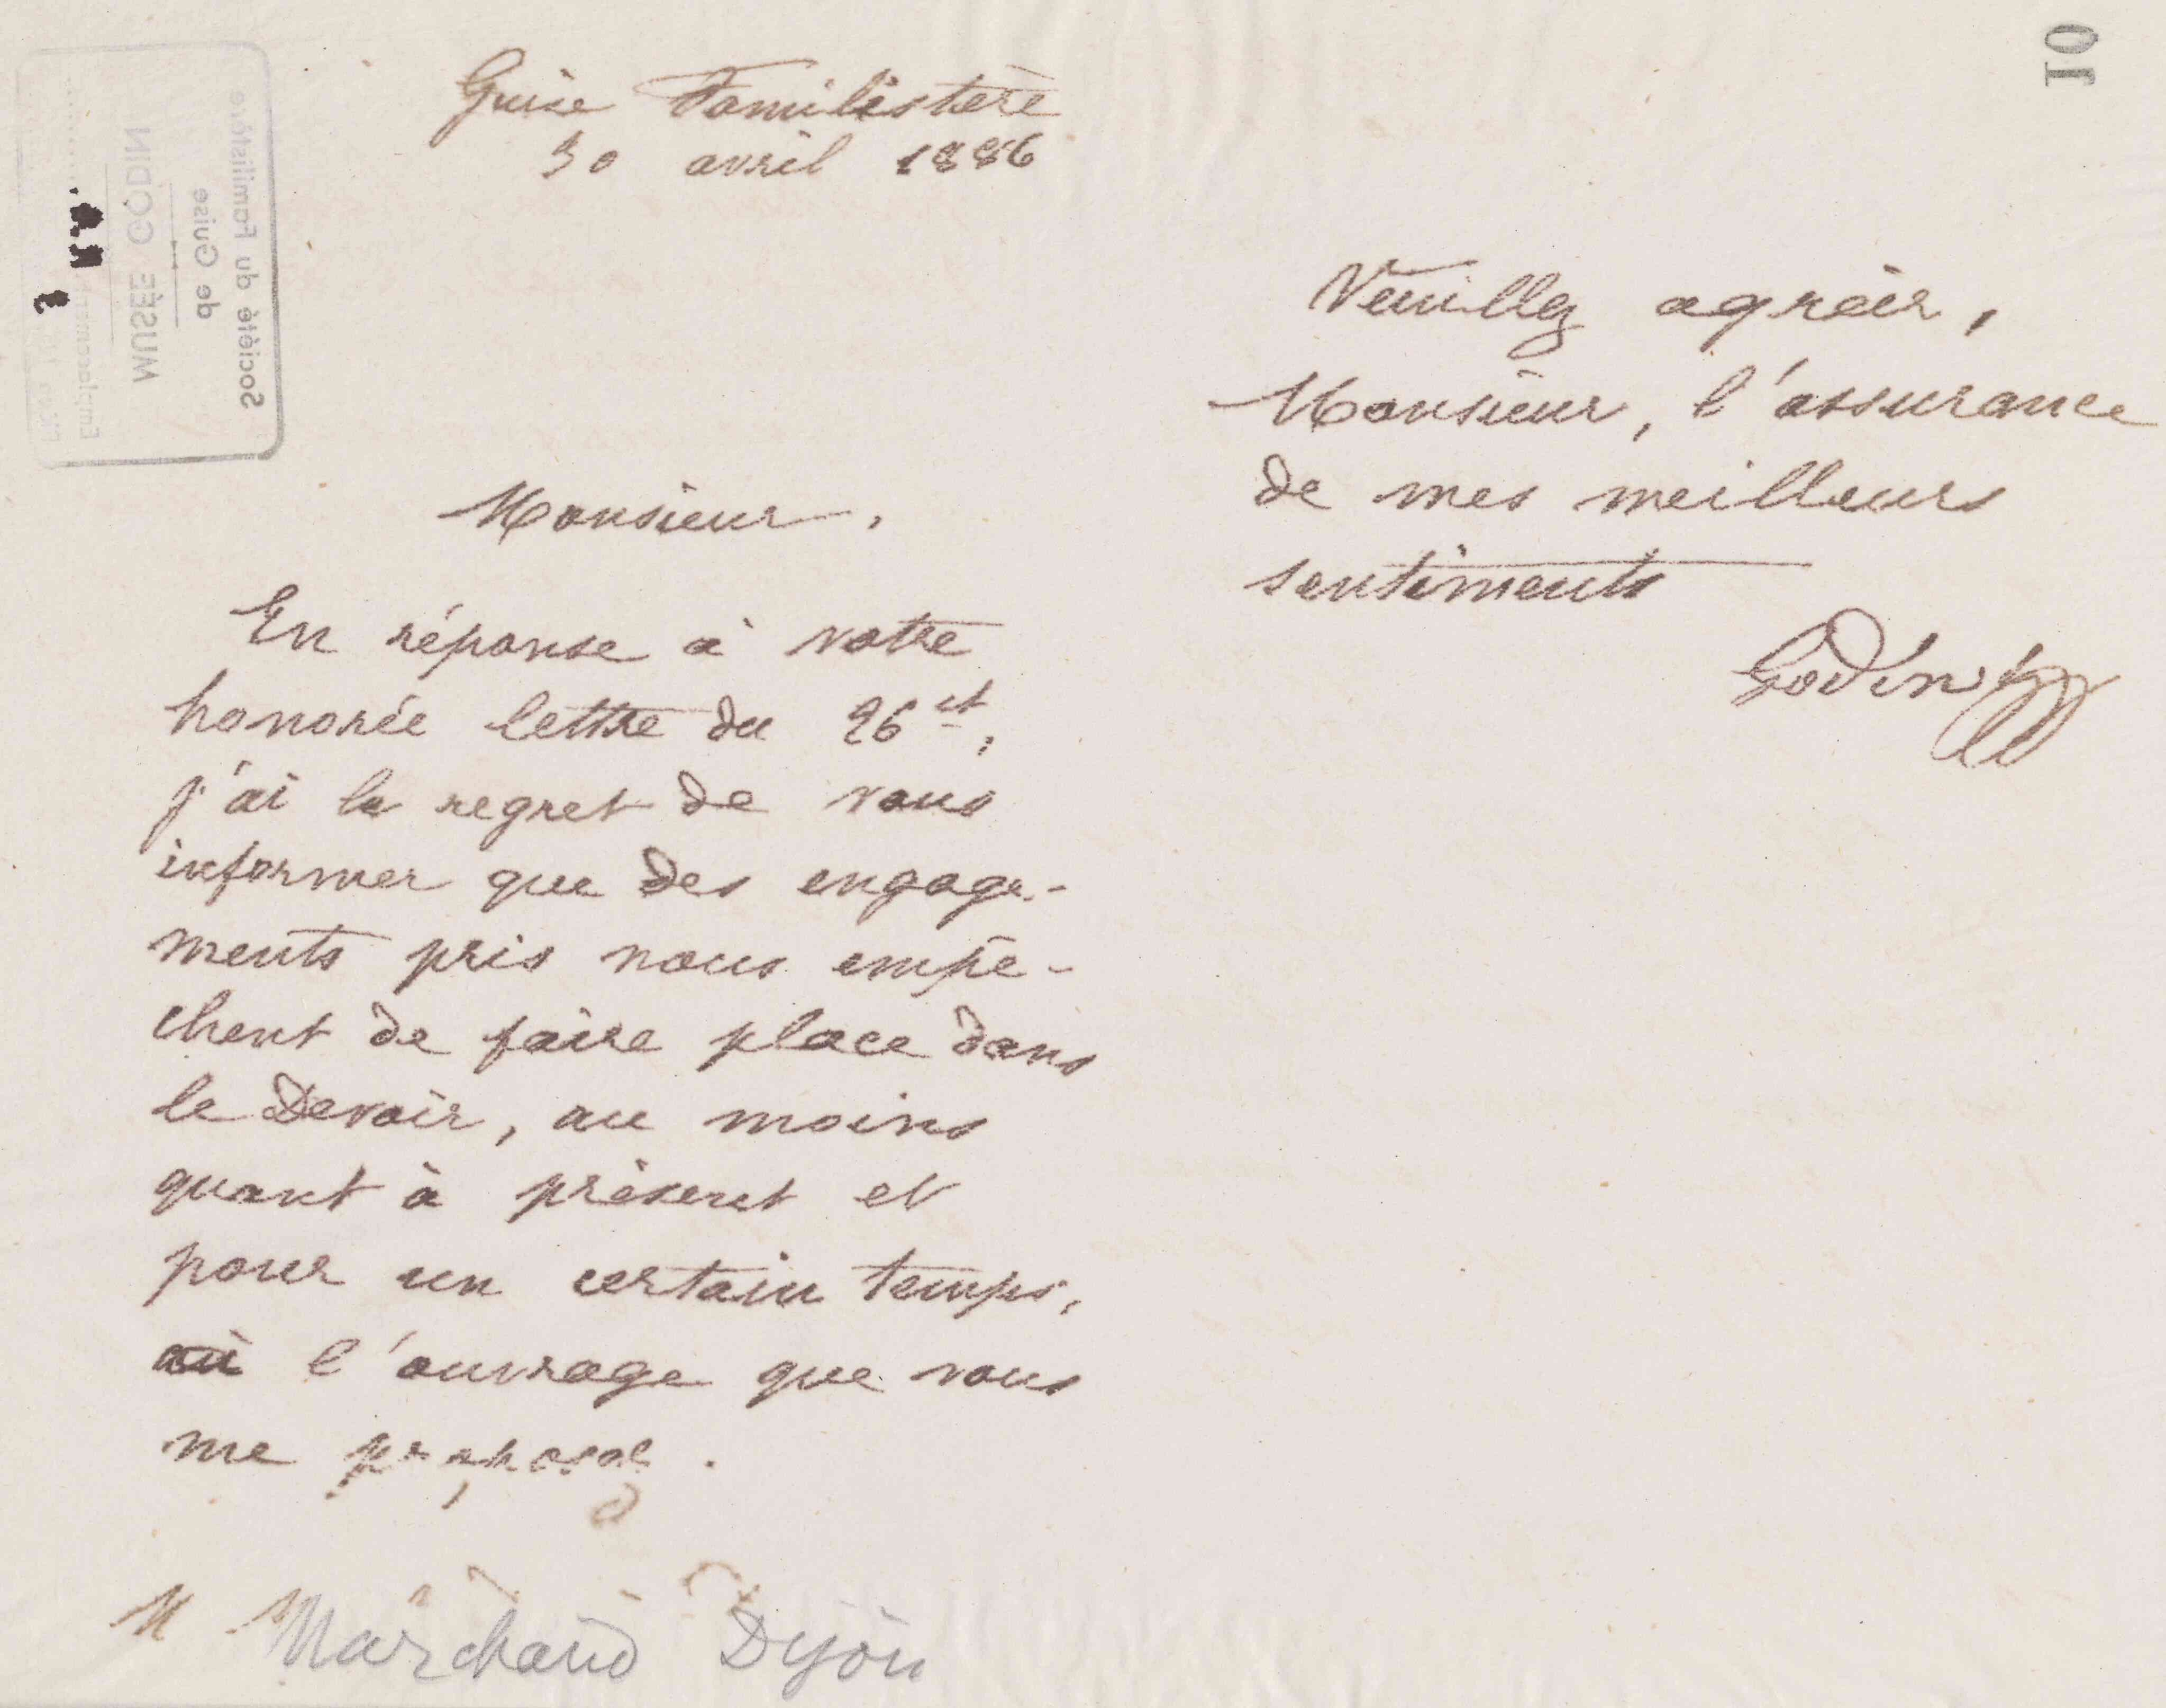 10
Société du Familistère
de Guise
MUSÉE GODIN
Emplacement
Guise Familistère
30 avril 1886
Monsieur,
En réponse à votre
honorée lettre du 26 ct,
j'ai le regret de vous
informer que des engage-
ments pris nous empê-
chent de faire place dans
le Devoir, au moins
quant à présent et
pour un certain temps,
à l'ouvrage que vous
me proposez.
M Marchand Dijon
Veuillez agréer,
Monsieur, l'assurance
de mes meilleurs
sentiments
Godin